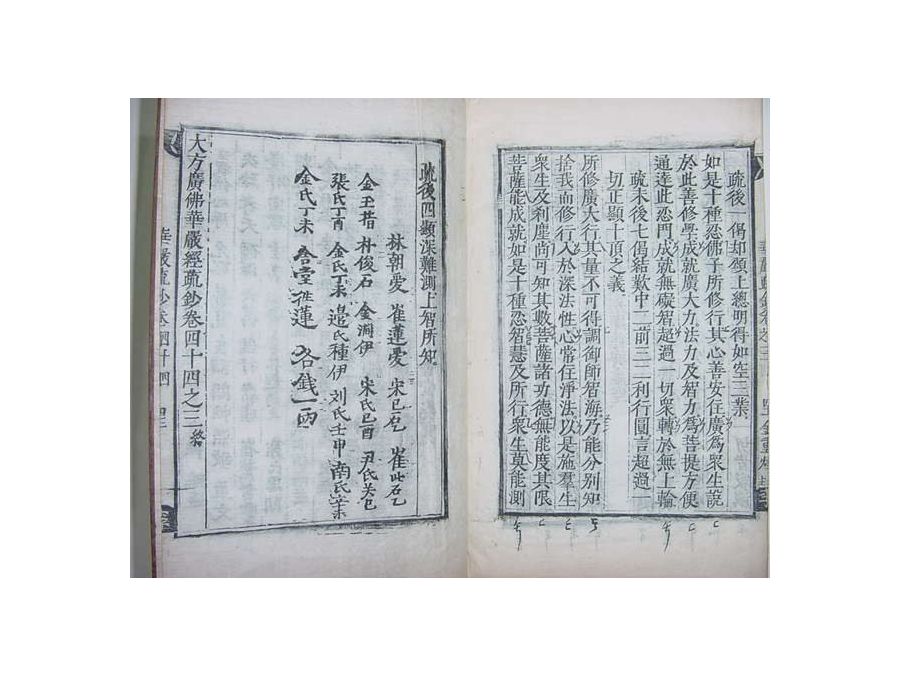 疏後一偈却頌上總明得如空三業
如是十種忍佛子所修行其心善安住廣為衆生說
於此善修學成就廣大力法力及智力為菩提方便
通達此忍門成就無礙智超過一切衆轉於無上輪
疏末後七偈結歎中二前三二利行圓言超過一
切正顯十頂之義
所修廣大行其量不可得調御師智海乃能分別知
捨我而修行入於深法性心常住淨法以是施羣生
衆生及刹塵尚可知其數菩薩諸功德無能度其限
菩薩能成就如是十種忍智慧及所行衆生莫能測
疏後四顯深難測上智所知
林朝愛 崔蓮愛 宋已乭 崔此石乙
朴俊石 宋氏己酉
張氏丁酉 金氏丁未 邊氏種伊 刘氏壬甲 南氏
金氏丁未 各錢一兩
大方廣佛華嚴經疏鈔卷四十四之三 終